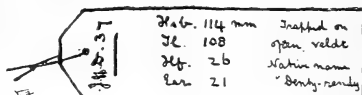 H&b. 114 mm Trapped on
Tl. 108 open veldt
Hf. 26 Native name
Ear 21 "Denty-rendy
37